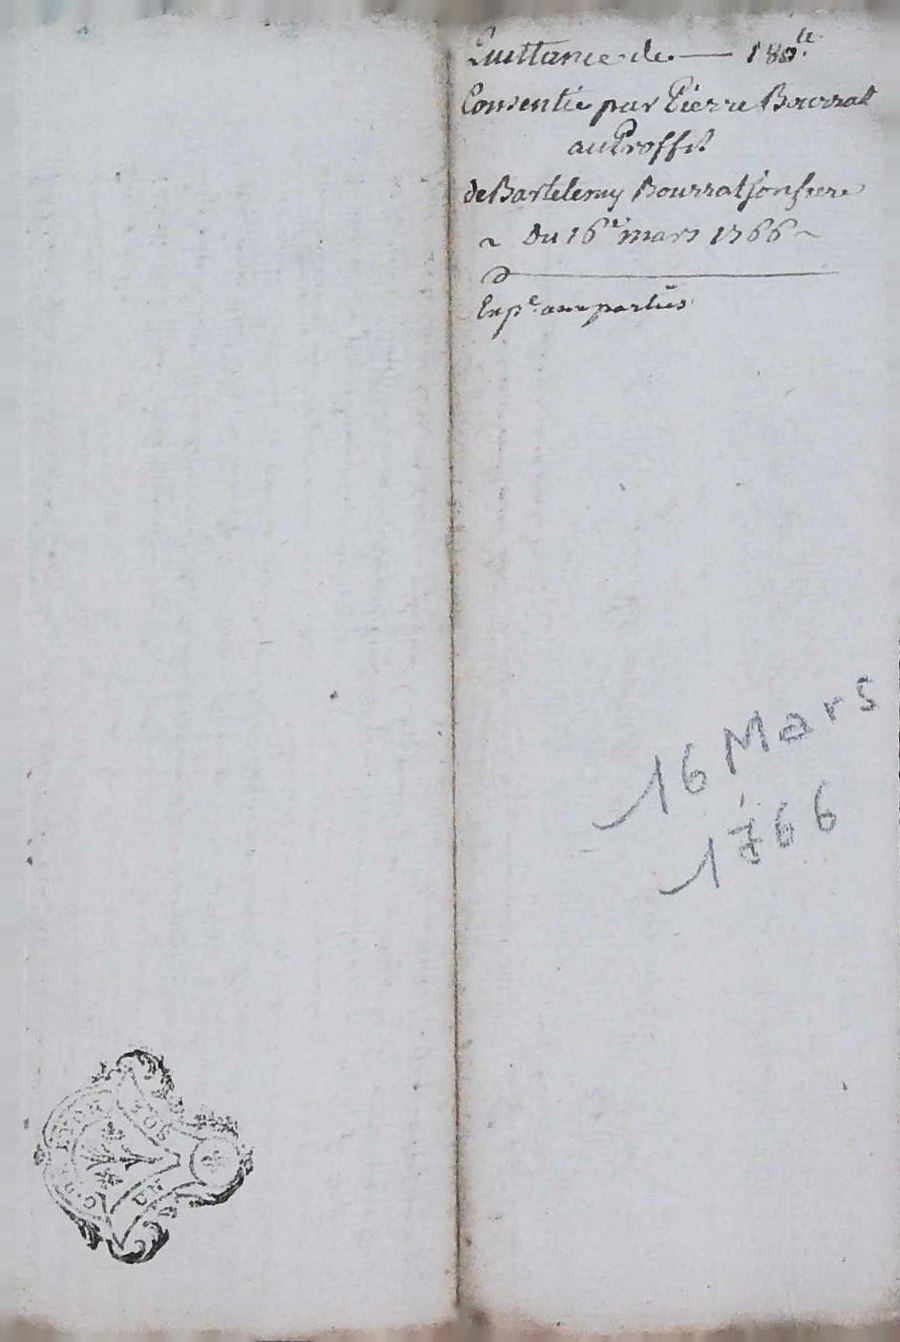 Quittance de — 180.ᵗᵗ
Consentie par Pierre Bourrat
au Proffit
de Bartelemy Bourrat son frere
~ Du 16ᵉ mars 1766 ~
Expᵉ aux parties
16 Mars
1766
G.N. LYON
SOLS